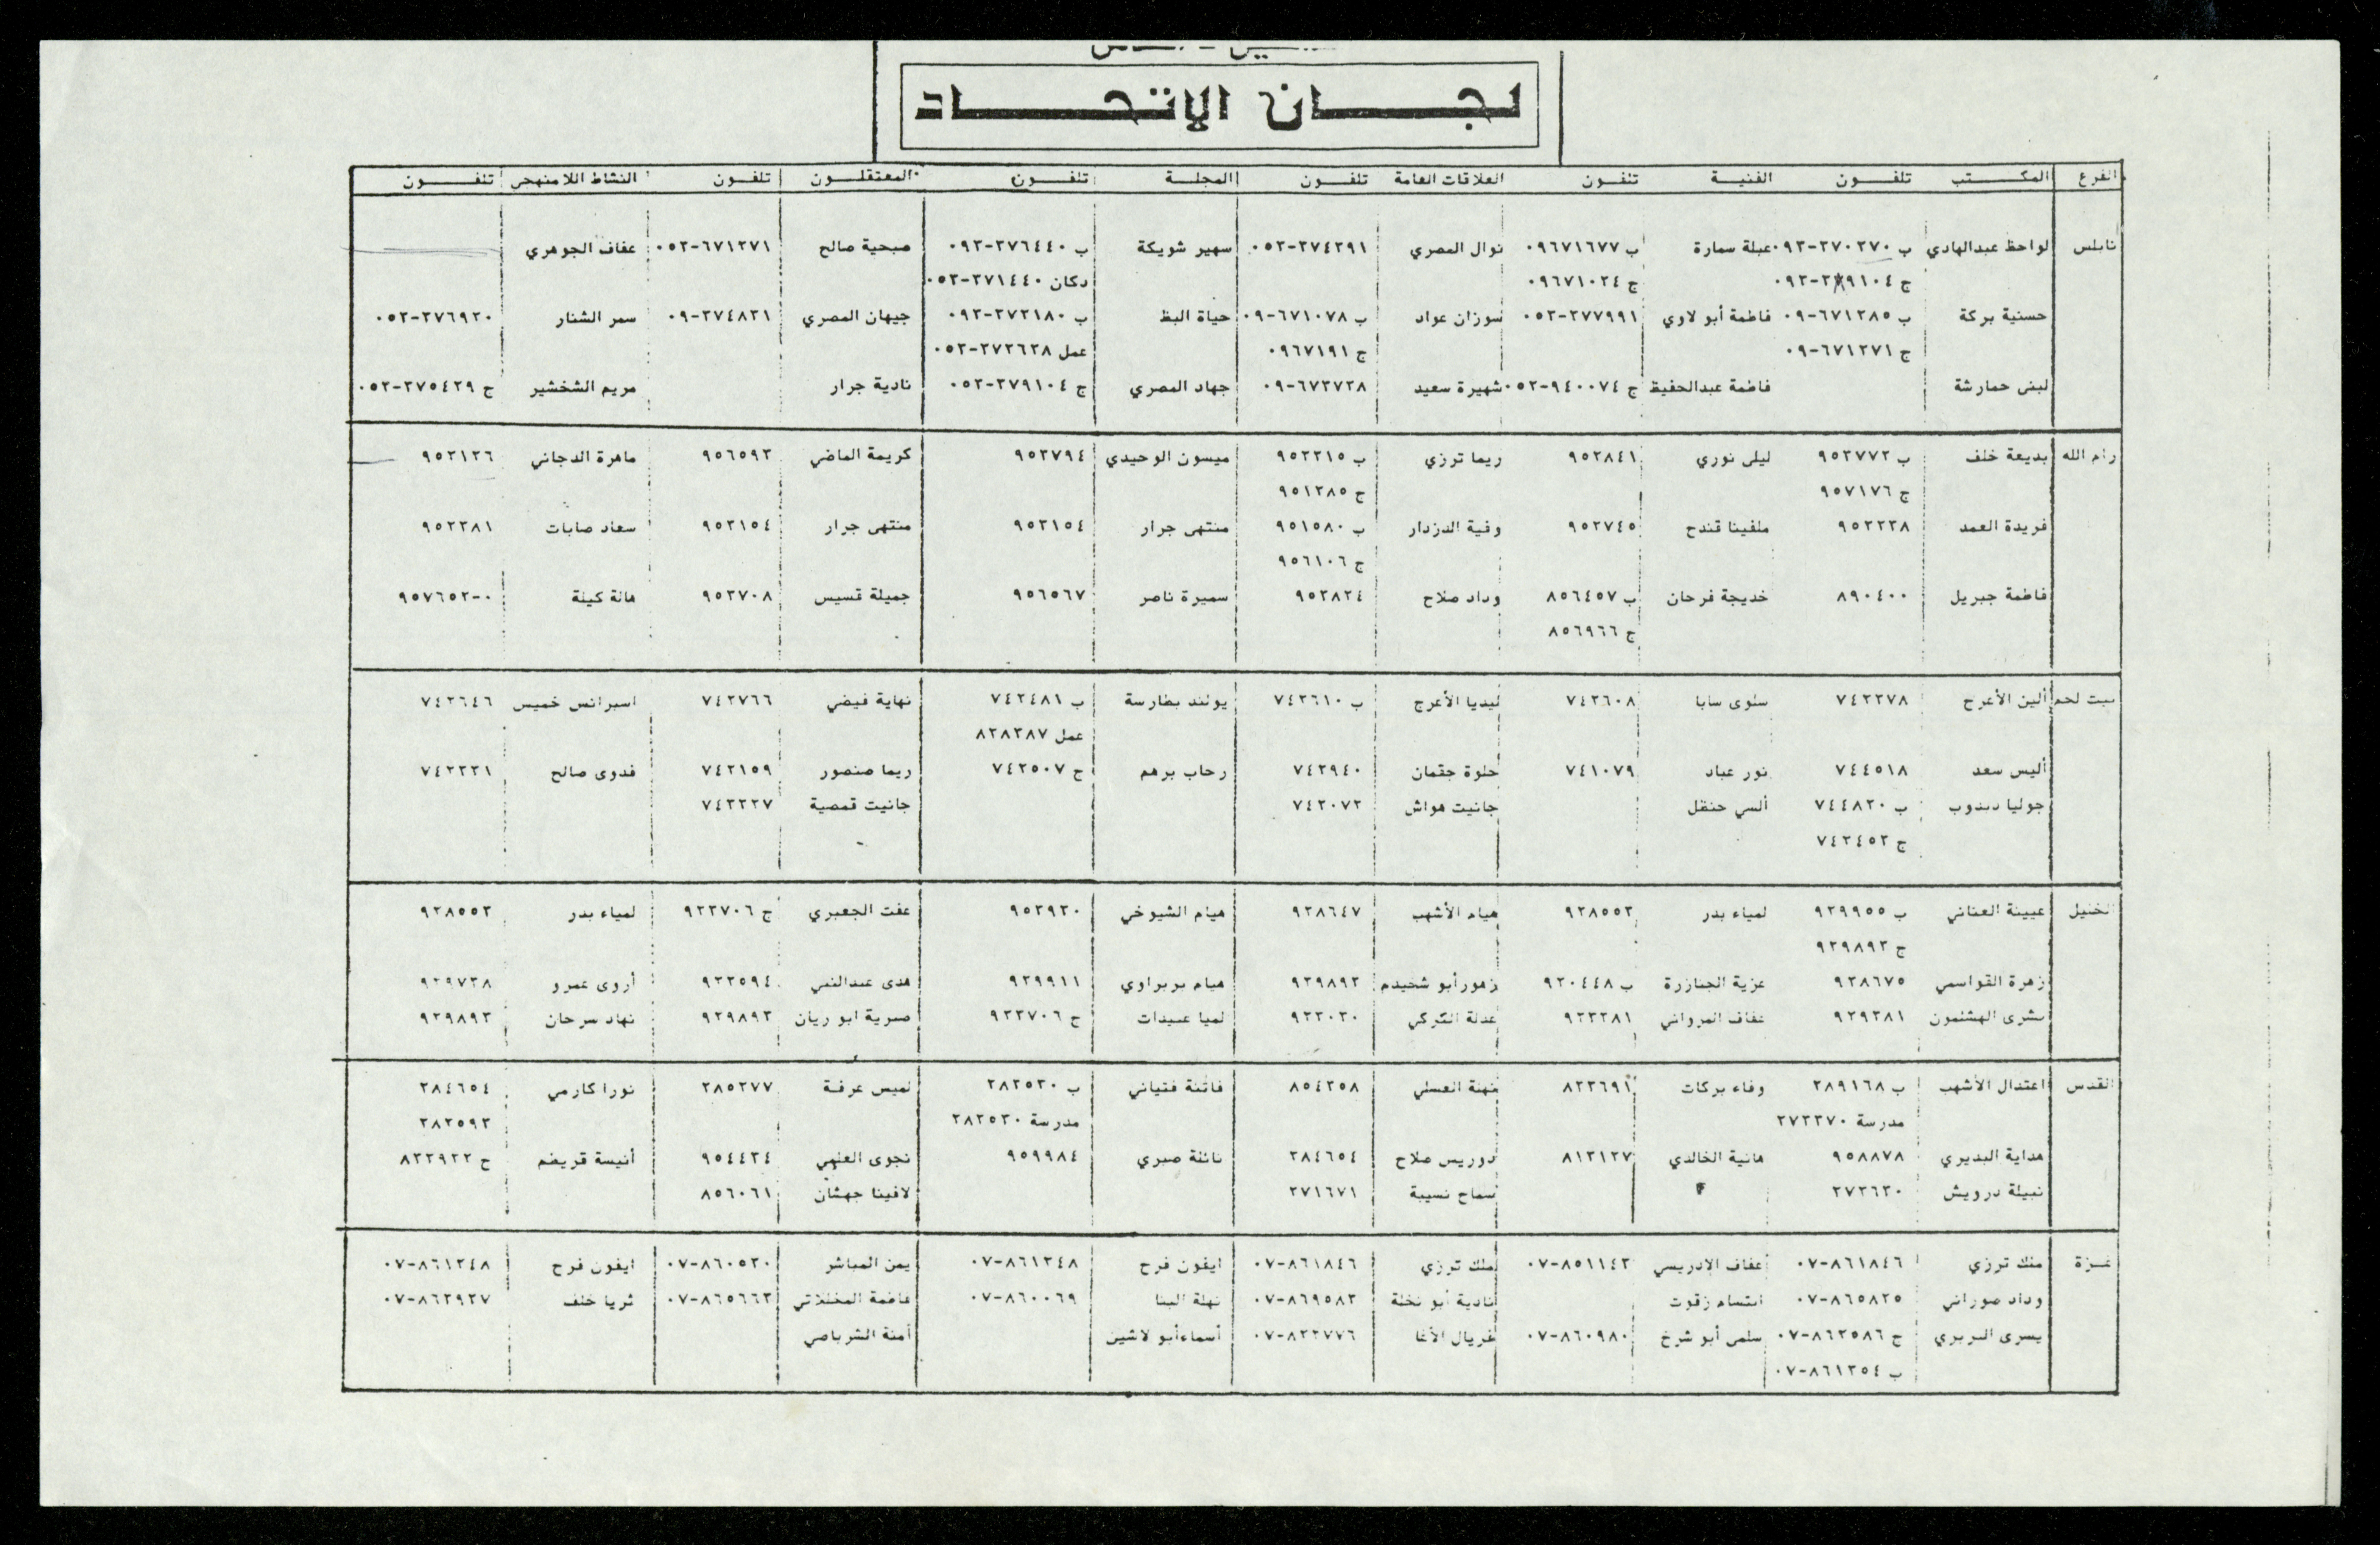 لجـــان الإتحـــاد
الفرع المكـتب تلفـون الفنيـة تلفـون العلاقات العامة تلفـون المجلـة تلفـون المعتقلـون تلفـون النشاط اللامنهجي تلفـون
نابلس لواحظ عبدالهادي ب ٢٧٠٢٧٠-٠٩٢ عبلة سمارة ب ٠٩٦٧١٦٧٧ نوال المصري ٢٧٤٢٩١-٠٥٢ سهير شويكة ب ٢٧٦٤٤٠-٠٩٢ صبحية صالح ٦٧١٢٧١-٠٥٢ عفاف الجوهري
ج ٢٧٩١٠٤-٠٩٢ ج ٠٩٦٧١٠٢٤ دكان ٢٧١٤٤٠-٠٥٢
حسنية بركة ب ٦٧١٢٨٥-٠٩ فاطمة أبو لاوي ٢٧٧٩٩١-٠٥٢ سوزان عواد ب ٦٧١٠٧٨-٠٩ حياة البظ ب ٢٧٢١٨٠-٠٩٢ جيهان المصري ٢٧٤٨٢١-٠٩ سمر الشنار ٢٧٦٩٢٠-٠٥٢
ج ٦٧١٢٧١-٠٩ ج ٠٩٦٧١٩١ عمل ٢٧٢٦٢٨-٠٥٢
لبنى حمارشة فاطمة عبدالحفيظ ج ٩٤٠٠٧٤-٠٥٢ شهيرة سعيد ٦٧٢٧٢٨-٠٩ جهاد المصري ج ٢٧٩١٠٤-٠٥٢ نادية جرار مريم الشخشير ج ٢٧٥٤٢٩-٠٥٢
رام الله بديعة خلف ب ٩٥٢٧٧٢ ليلى نوري ٩٥٢٨٤١ ريما ترزي ب ٩٥٢٢١٥ ميسون الوحيدي ٩٥٢٧٩٤ كريمة الماضي ٩٥٦٥٩٢ ماهرة الدجاني ٩٥٢١٢٦
ج ٩٥٧١٧٦ ج ٩٥١٢٨٥
فريدة العمد ٩٥٢٢٢٨ ملفينا قندح ٩٥٢٧٤٥ وفية الدزدار ب ٩٥١٥٨٠ منتهى جرار ٩٥٢١٥٤ منتهى جرار ٩٥٢١٥٤ سعاد صابات ٩٥٢٢٨١
ج ٩٥٦١٠٦
فاطمة جبريل ٨٩٠٤٠٠ خديجة فرحان ب ٨٥٦٤٥٧ وداد صلاح ٩٥٢٨٢٤ سميرة ناصر ٩٥٦٥٦٧ جميلة قسيس ٩٥٢٧٠٨ هالة كيلة ٩٥٧٦٥٢-٠
ج ٨٥٦٩٦٦
بيت لحم ألين الأعرج ٧٤٢٢٧٨ سلوى سابا ٧٤٢٦٠٨ ليديا الأعرج ب ٧٤٢٦١٠ يولند بطارسة ب ٧٤٢٤٨١ نهاية فيضي ٧٤٢٧٦٦ اسبرانس خميس ٧٤٢٦٤٦
عمل ٨٢٨٢٨٧
أليس سعد ٧٤٤٥١٨ نور عباد ٧٤١٠٧٩ حلوة جقمان ٧٤٢٩٤٠ رحاب برهم ج ٧٤٢٥٠٧ ريما منصور ٧٤٢١٥٩ فدوى صالح ٧٤٢٢٢١
جوليا دبدوب ب ٧٤٤٨٢٠ ألسي حنظل جانيت هواش ٧٤٢٠٧٢ جانيت قمصية ٧٤٢٢٢٧
ج ٧٤٢٤٥٢
الخليل عبينة العناني ب ٩٢٩٩٥٥ لمياء بدر ٩٢٨٥٥٢ هيام الأشهب ٩٢٨٦٤٧ هيام الشيوخي ٩٥٢٩٢٠ عفت الجعبري ج ٩٢٢٧٠٦ لمياء بدر ٩٢٨٥٥٢
ج ٩٢٩٨٩٢
زهرة القواسمي ٩٢٨٦٧٥ عزية الجنازرة ب ٩٢٠٤٤٨ زهور أبو شخيدم ٩٢٩٨٩٢ هيام بربراوي ٩٢٩٩١١ هدى عبدالنبي ٩٢٢٥٩٤ أروى عمرو ٩٢٩٧٢٨
بشرى الهشلمون ٩٢٩٢٨١ عفاف المرواني ٩٢٢٢٨١ عدلة الكركي ٩٢٢٠٢٠ لميا عبيدات ج ٩٢٢٧٠٦ صبرية ابو ريان ٩٢٩٨٩٢ نهاد سرحان ٩٢٩٨٩٢
القدس اعتدال الأشهب ب ٢٨٩١٦٨ وفاء بركات ٨٢٢٦٩١ نهلة العسلي ٨٥٤٢٥٨ فاتنة فتياني ب ٢٨٢٥٢٠ لميس عرفة ٢٨٥٢٧٧ نورا كارمي ٢٨٤٦٥٤
مدرسة ٢٧٢٢٧٠ مدرسة ٢٨٢٥٢٠ ٢٨٢٥٩٢
هداية البديري ٩٥٨٨٧٨ هانية الخالدي ٨١٢١٢٧ دوريس صلاح ٢٨٤٦٥٤ نائلة صبري ٩٥٩٩٨٤ نجوى العلمي ٩٥٤٤٢٤ أنيسة قريضم ج ٨٢٢٩٢٢
نبيلة درويش ٢٧٢٦٢٠ سماح نسيبة ٢٧١٦٧١ لافينا جهشان ٨٥٦٠٦١
غـزة ملك ترزي ٨٦١٨٤٦-٠٧ عفاف الإدريسي ٨٥١١٤٢-٠٧ ملك ترزي ٨٦١٨٤٦-٠٧ ايفون فرح ٨٦١٢٤٨-٠٧ يمن المباشر ٨٦٠٥٢٠-٠٧ ايفون فرح ٨٦١٢٤٨-٠٧
وداد صوراني ٨٦٥٨٢٥-٠٧ ابتسام زقوت نادية أبو نخلة ٨٦٩٥٨٢-٠٧ نهلة البنا ٨٦٠٠٦٩-٠٧ فاطمة المخللاتي ٨٦٥٦٦٢-٠٧ ثريا خلف ٨٦٢٩٢٧-٠٧
يسرى البربري ج ٨٦٢٥٨٦-٠٧ سلمى أبو شرخ ٨٦٠٩٨٠-٠٧ فريال الأغا ٨٢٢٧٧٦-٠٧ أسماء أبو لاشين أمنة الشرباصي
ب ٨٦١٢٥٤-٠٧